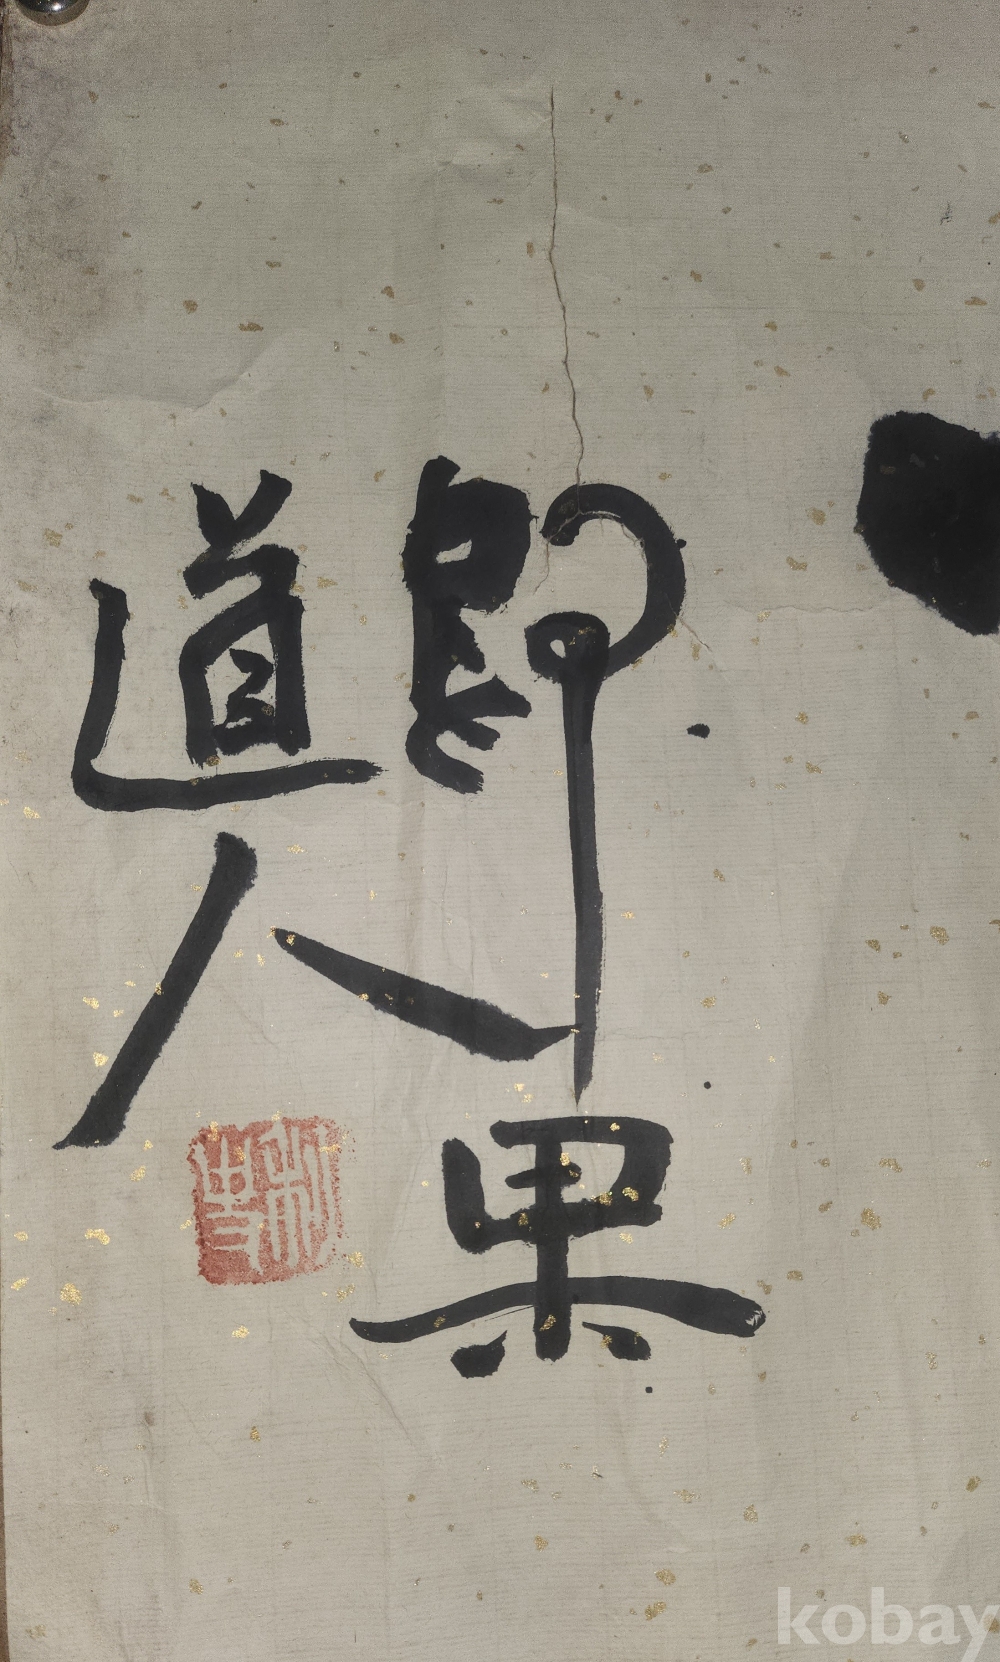 卽果
道人
kobay